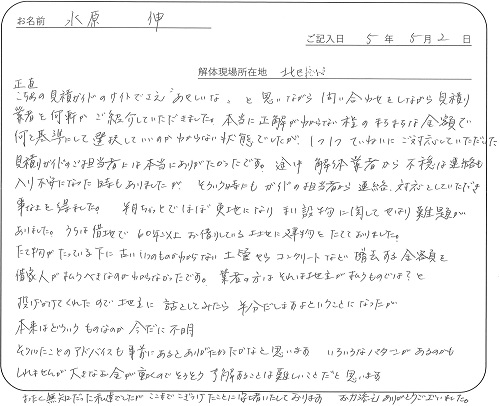 お名前 水原 伸
ご記入日 5年 5月 2日
解体現場所在地 北区
正直
こちらの見積ガイドのサイトでさえ"あやしいな"と思いながら問い合わせをしながら見積り
業者を何軒かご紹介していただきました。本当に正解がわからない程のまちまちな金額で
何を基準にして選択していいのかわからない状態でしたが、1つ1つていねいにご対応していただいた
見積りガイドのご担当者には本当にありがたかったです。途中解体業者から不穏な連絡も
入り不安になった時もありましたが そういう時にもガイドの担当者から連絡、対応をしていただき
事なきを得ました。 半月ちょっとでほぼ更地になり まい設物に関してやはり難題が
ありました。うちは借地で60年以上お借りしている土地に建物をたてておりました。
たて物がたっている下に古いいつのものかわからない土管やらコンクリートなど 撤去する金額を
借家人が払うべきなのかわからなかったです。業者の方はそれは地主が払うものでは？と
投げかけてくれたので地主に話をしてみたら半分だしますよということになったが
本来はどういうものなのか今だに不明
そういったことのアドバイスも事前にあるとありがたかったかなと思います いろいろなパターンがあるのかも
しれませんが 大きなお金が動くのでそうそう了解することは難しいことだと思います
お互に無知だった私達でしたがここまでこぎつけたことに安堵いたしております お力添えありがとうございました。